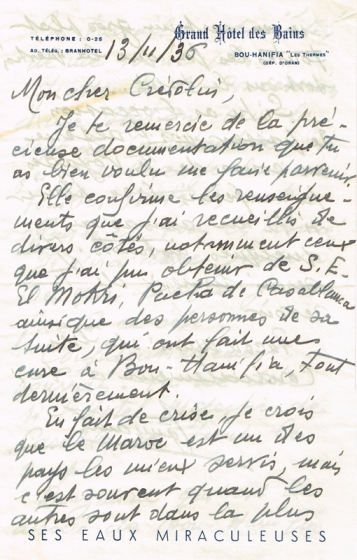 Grand Hôtel des Bains
TÉLÉPHONE : 0-25
AD. TÉLÉG. : GRANHOTEL
BOU-HANIFIA "LES THERMES"
(DÉP. D'ORAN)
13/4/36
Mon cher
Je te remercie de la pré-
cieuse documentation que tu
as bien voulu me faire parvenir.
Elle confirme les renseigne-
ments que j'ai recueillis de
divers côtés, notamment ceux
que j'ai pu obtenir de S.E.
El Mokri, Pacha de Casablanca
ainsi que des personnes de sa
suite, qui ont fait une
cure à Bou-Hanifia, tout
dernièrement.
En fait de crise, je crois
que le Maroc est un des
pays les mieux servis, mais
c'est souvent quand les
autres sont dans la plus
SES EAUX MIRACULEUSES